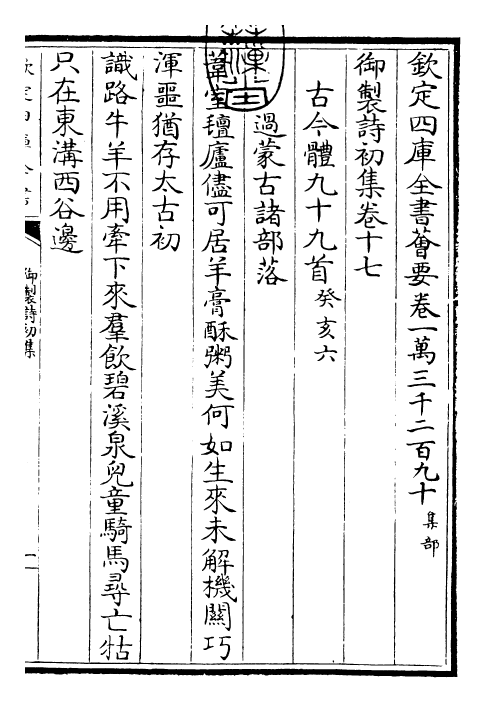 欽定四庫全書薈要卷一萬三千二百九十 集部
御製詩初集卷十七
古今體九十九首 癸亥六
過蒙古諸部落
葦室氊廬儘可居羊膏酥粥美何如生來未解機關巧
渾噩猶存太古初
識路牛羊不用牽下來羣飲碧溪泉兒童騎馬尋亡牯
只在東溝西谷邊
御製詩初集
一